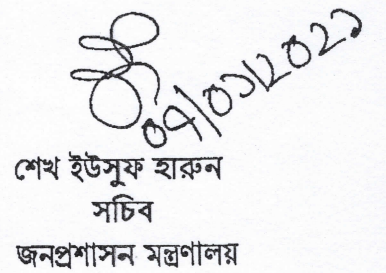 ০৭/০১/২০২১
শেখ ইউসুফ হারুন
সচিব
জনপ্রশাসন মন্ত্রণালয়